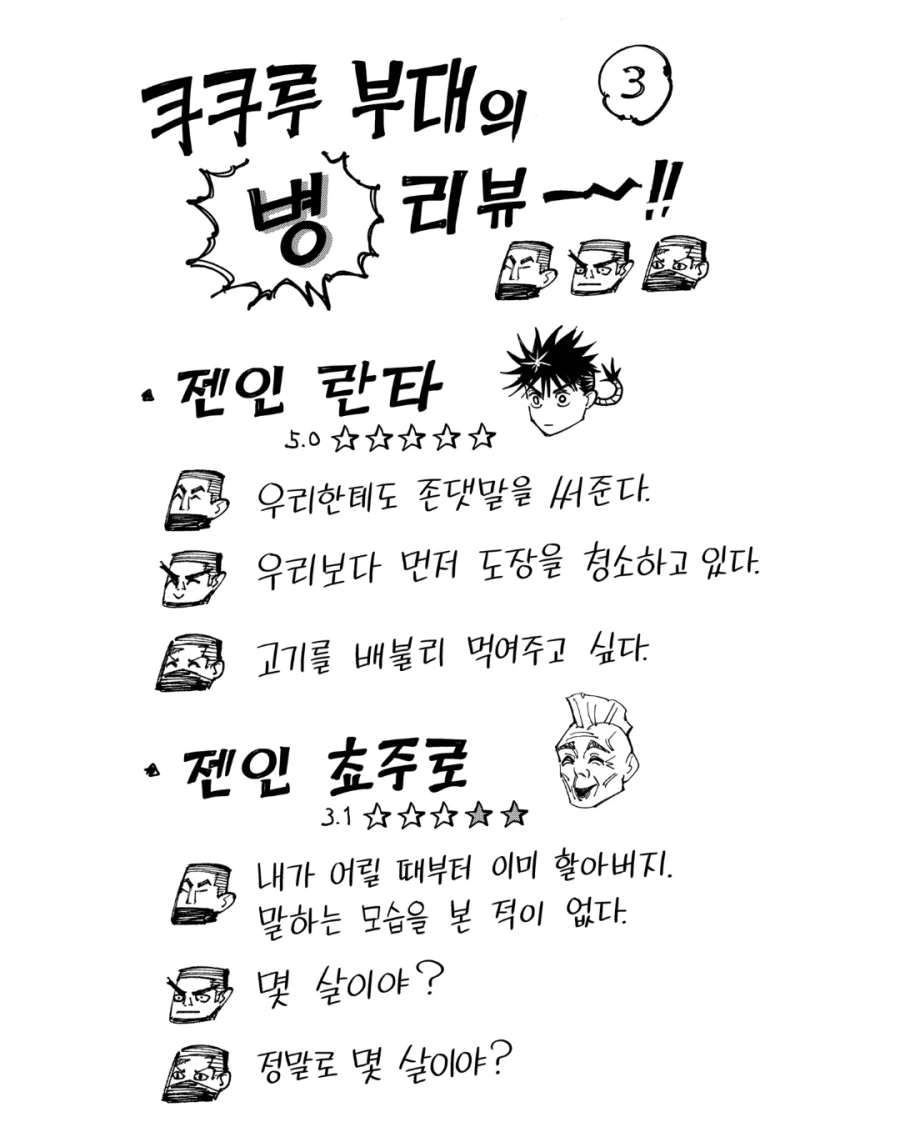 쿠쿠루 부대의 3
병 리뷰~!!
· 젠인 란타
5.0 ☆☆☆☆☆
우리한테도 존댓말을 써준다.
우리보다 먼저 도장을 청소하고 있다.
고기를 배불리 먹여주고 싶다.
· 젠인 쵸주로
3.1 ☆☆☆★★
내가 어릴 때부터 이미 할아버지.
말하는 모습을 본 적이 없다.
몇 살이야?
정말로 몇 살이야?